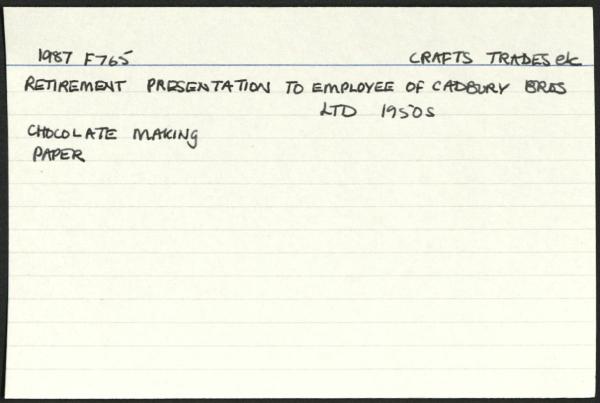 1987 F765 CRAFTS TRADES etc
RETIREMENT PRESENTATION TO EMPLOYEE OF CADBURY BROS
LTD 1950S
CHOCOLATE MAKING
PAPER